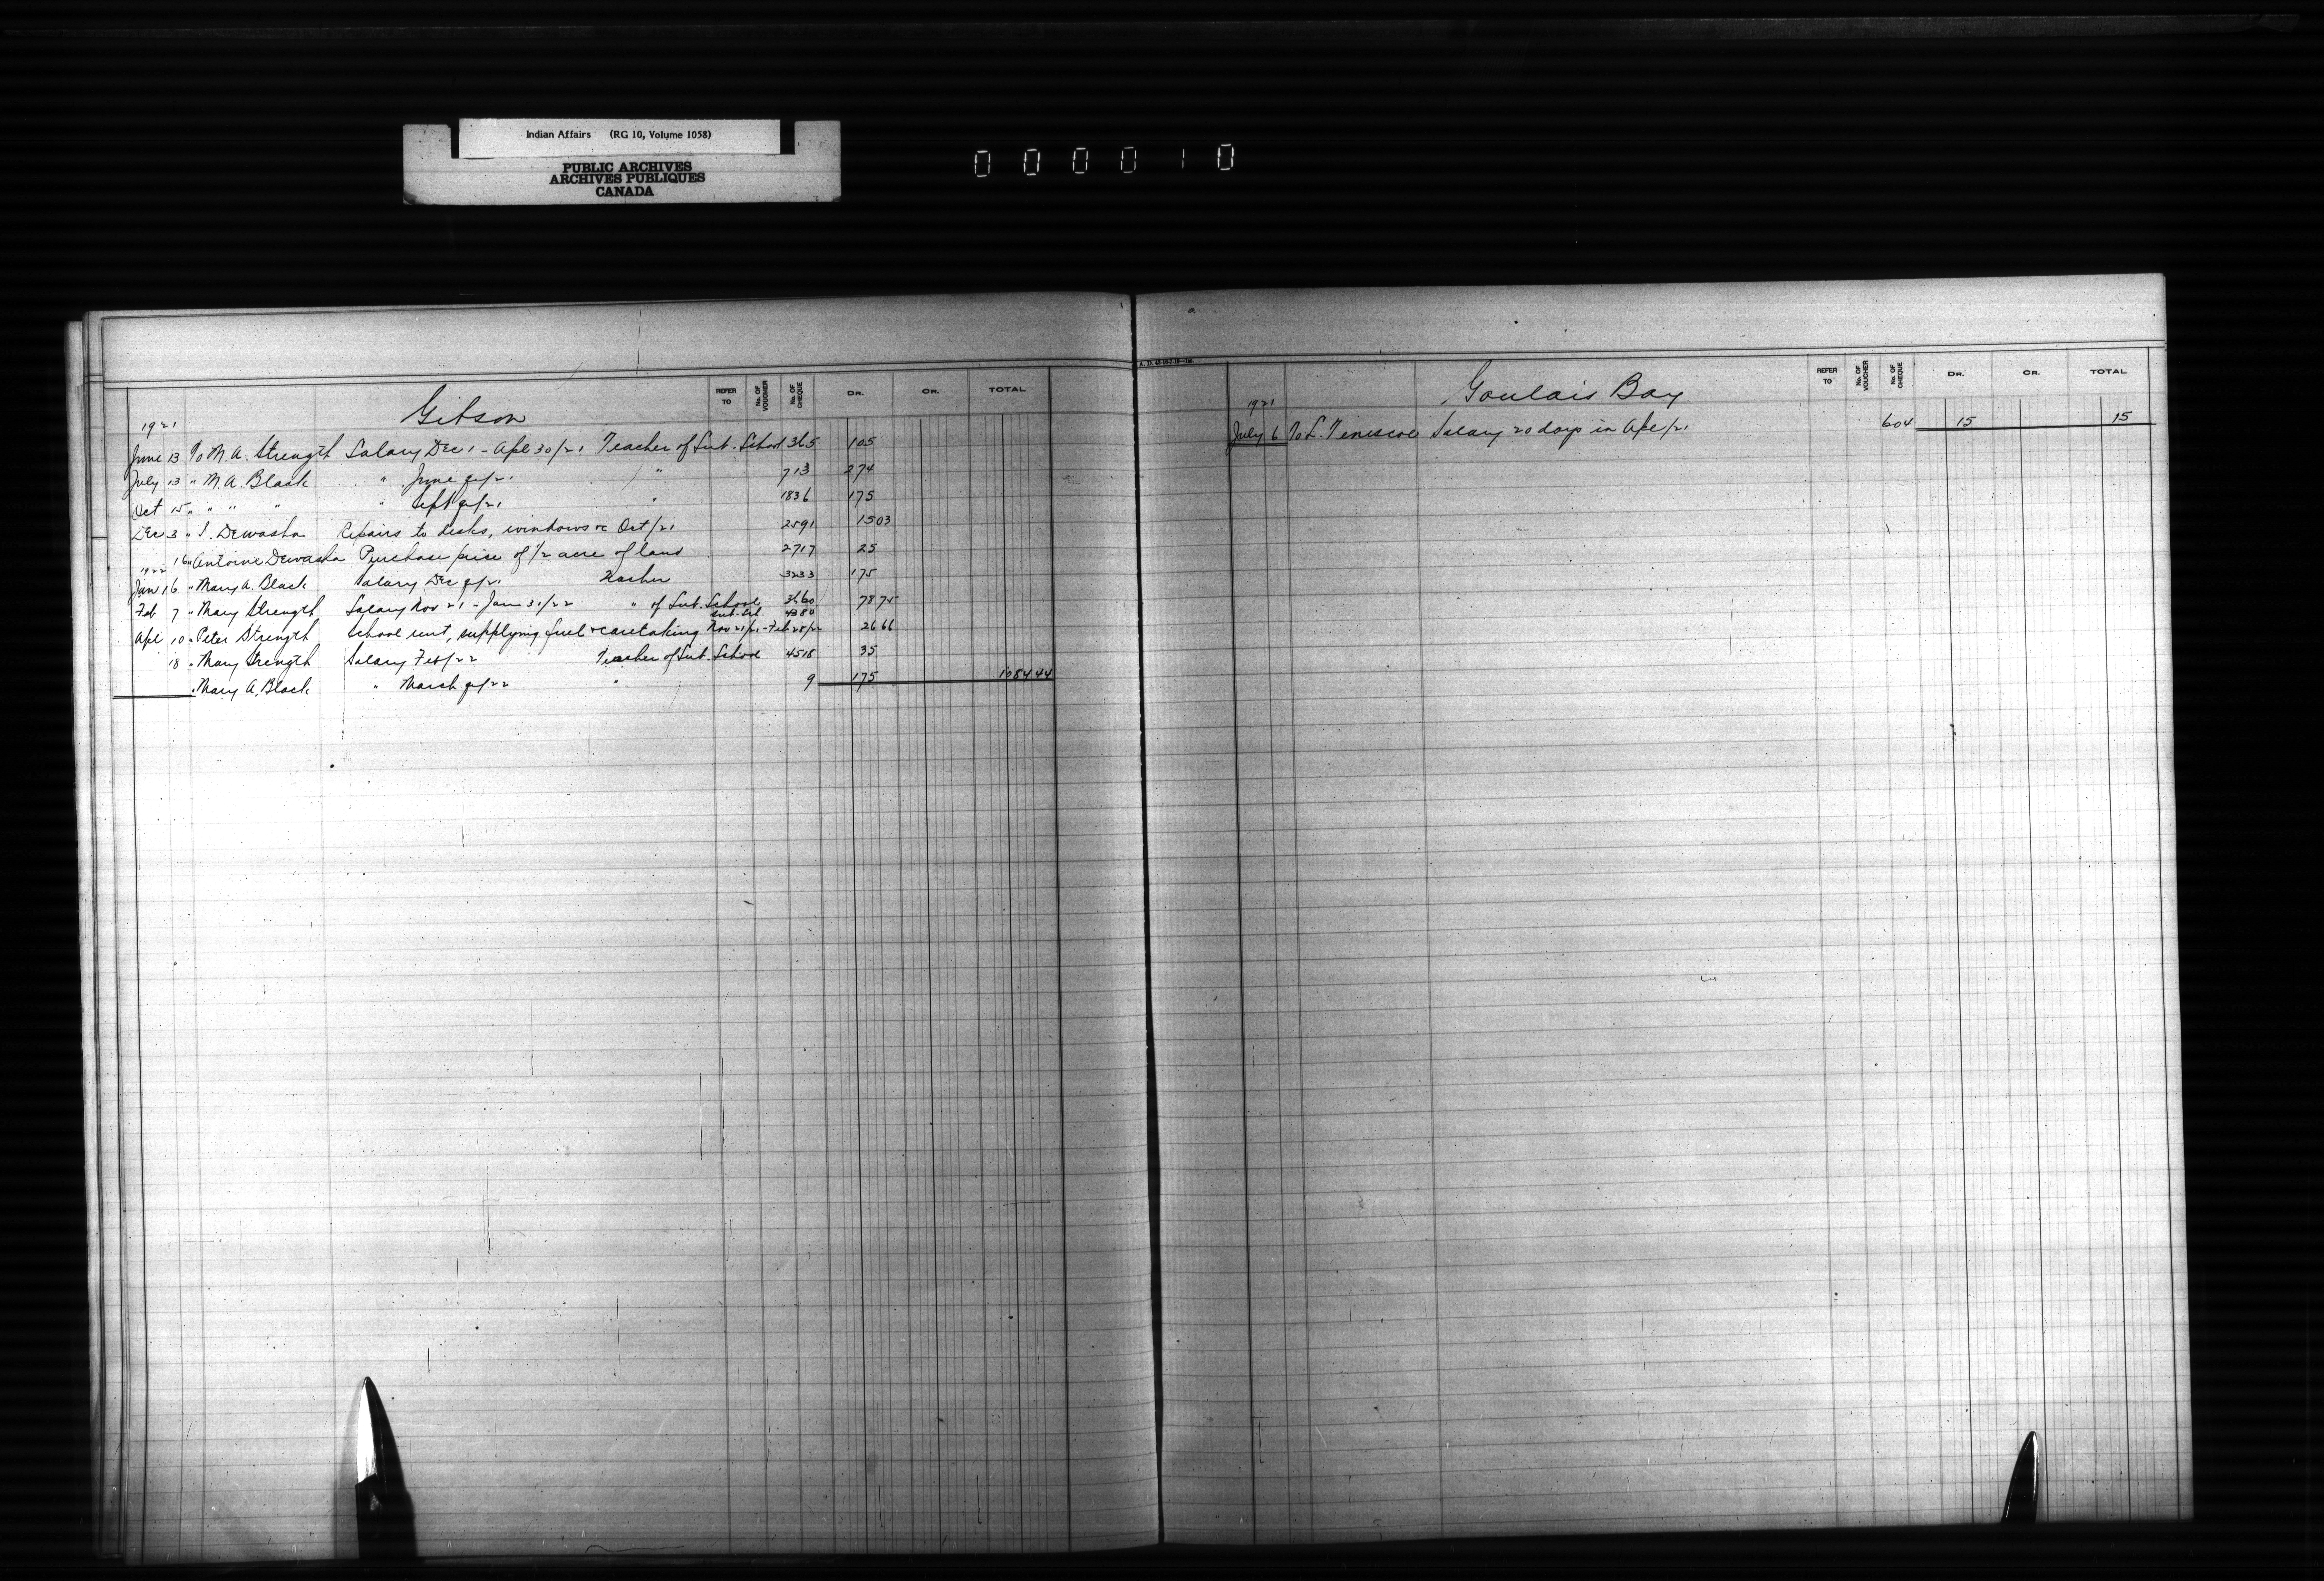 Indian Affairs (RG 10, Volume 1058)
PUBLIC ARCHIVES
ARCHIVES PUBLIQUES
CANADA
000010
Gibson
REFER TO No. OF VOUCHER No. OF CHEQUE DR. CR. TOTAL
1921
June 13 To M. A. Strength Salary Dec 1 - Apl 30/21 Teacher of Sub. School 365 105
July 13 " M. A. Black " June qr/21 " 713 274
Oct 15 " " " " Sept qr/21 " 1836 175
Dec 3 " Dewasha Repairs to desks, windows &c Oct/21 2591 15 03
16 " Antoine Dewasha Purchase price of 1/2 acre of land 2717 25
1922
Jan 16 " Mary A. Black Salary Dec qr/21 Teacher 3233 175
Feb 7 " Mary Strength Salary Nov 21 - Jan 31/22 " of Sub. School 3560 78 75
Apl 10 " Peter Strength School rent, supplying fuel & caretaking sub. scl. Nov 21/21 - Feb 28/22 4380 26 66
18 " Mary Strength Salary Feb/22 Teacher of Sub. School 4518 35
" Mary A. Black " March qr/22 " 9 175 1084 44
Goulais Bay
REFER TO No. OF VOUCHER No. OF CHEQUE DR. CR. TOTAL
1921
July 6 To L. Teniscoe Salary 20 days in Apl/21 604 15 15